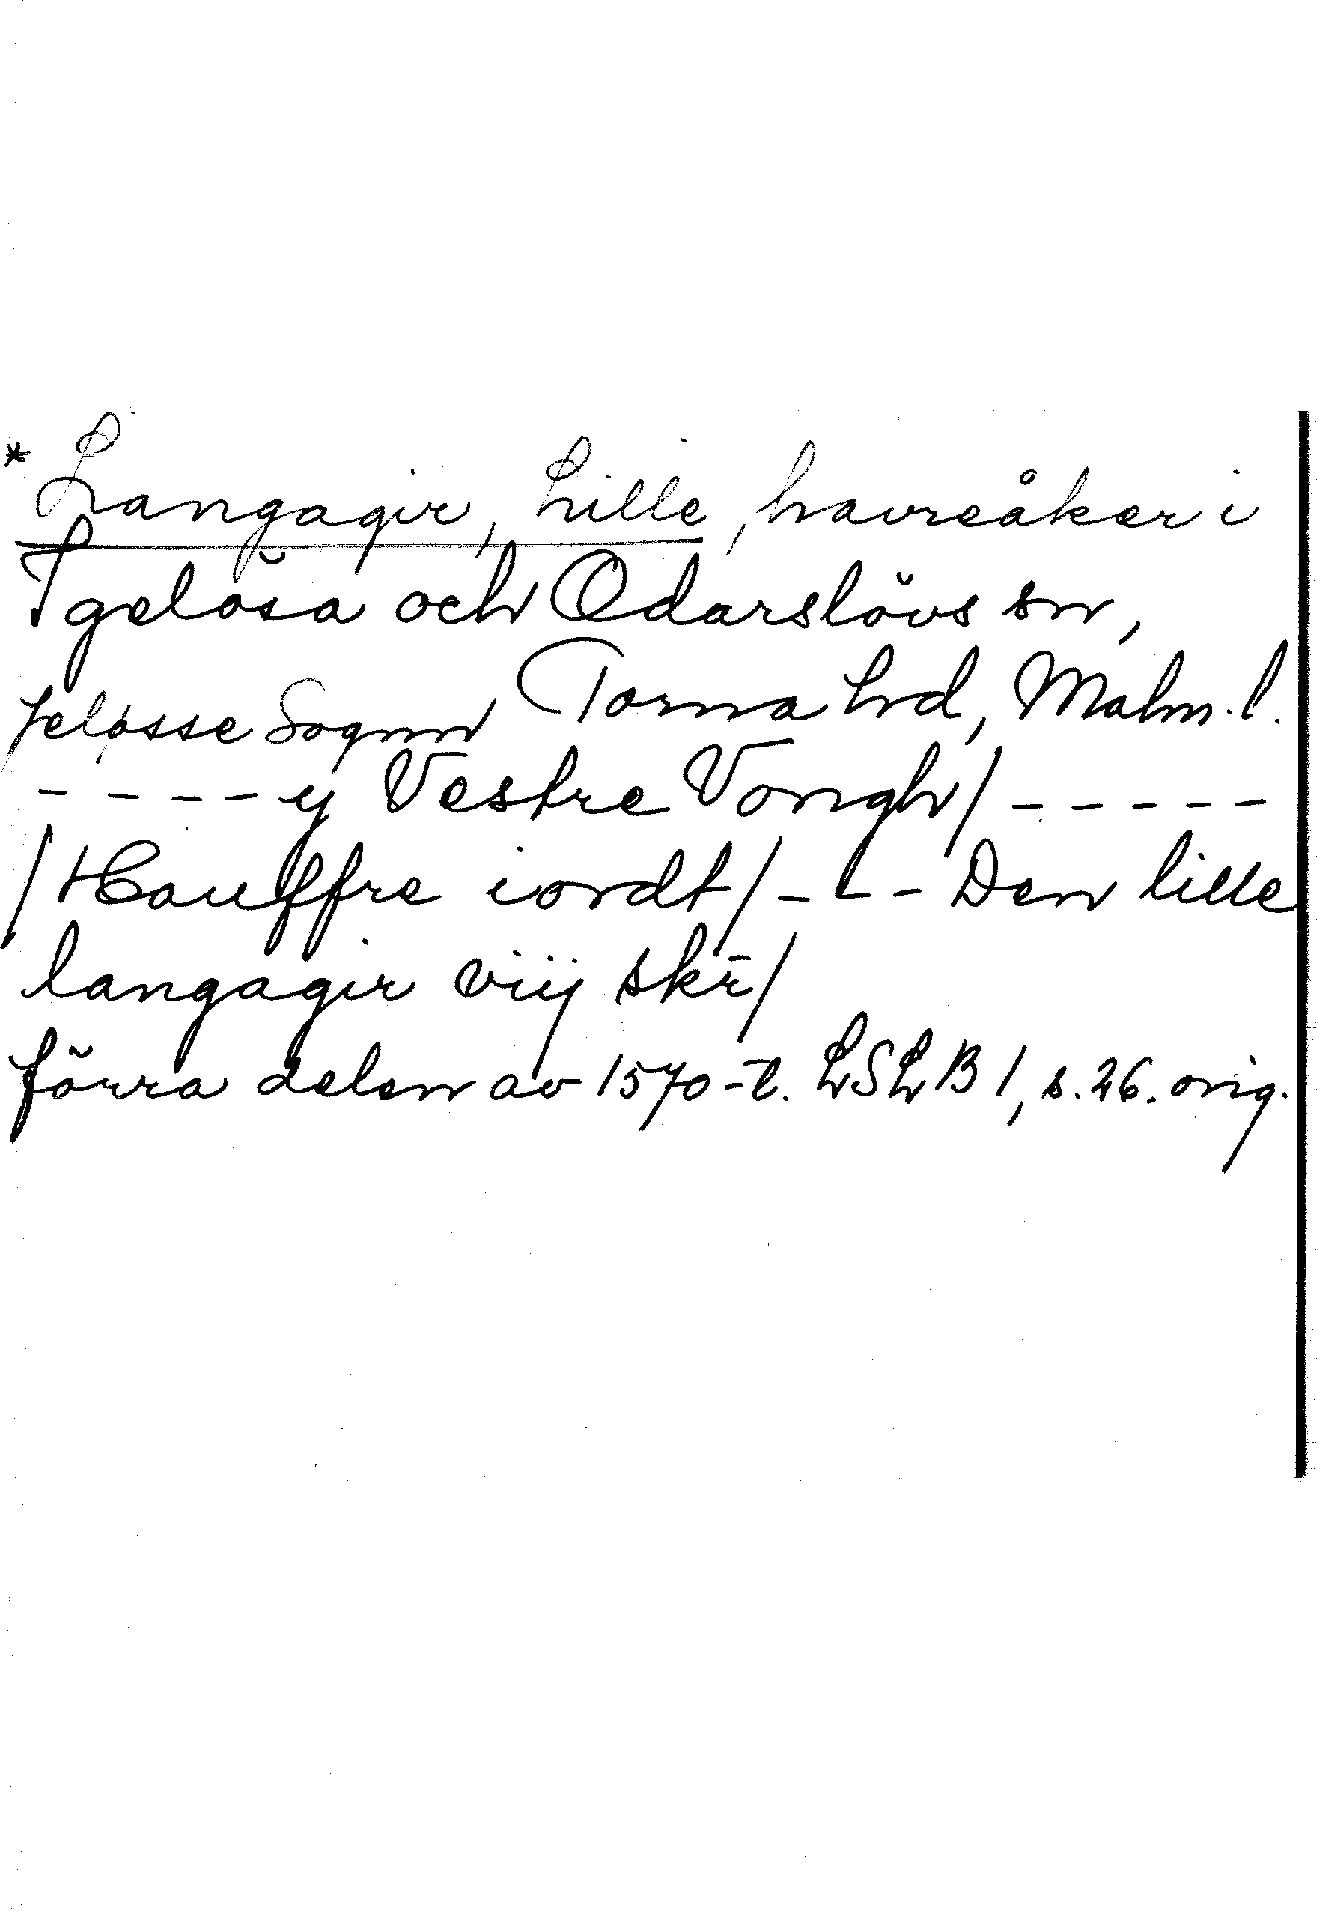 * Langagir, Lille, havreåker i
Igelösa och Odarslövs sn,
Jeløsse Sognn Torna hd, Malm. l.
- - - - y Vestre Vongh/ - - - - -
/Hauffre iordt/ - - - Den lille
langagir viij skr̄/
förra delen av 1570-t. LSLB 1, s. 26. orig.